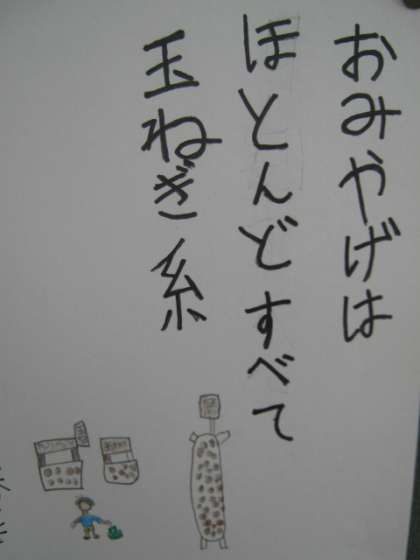 おみやげは
ほとんどすべて
玉ねぎ糸